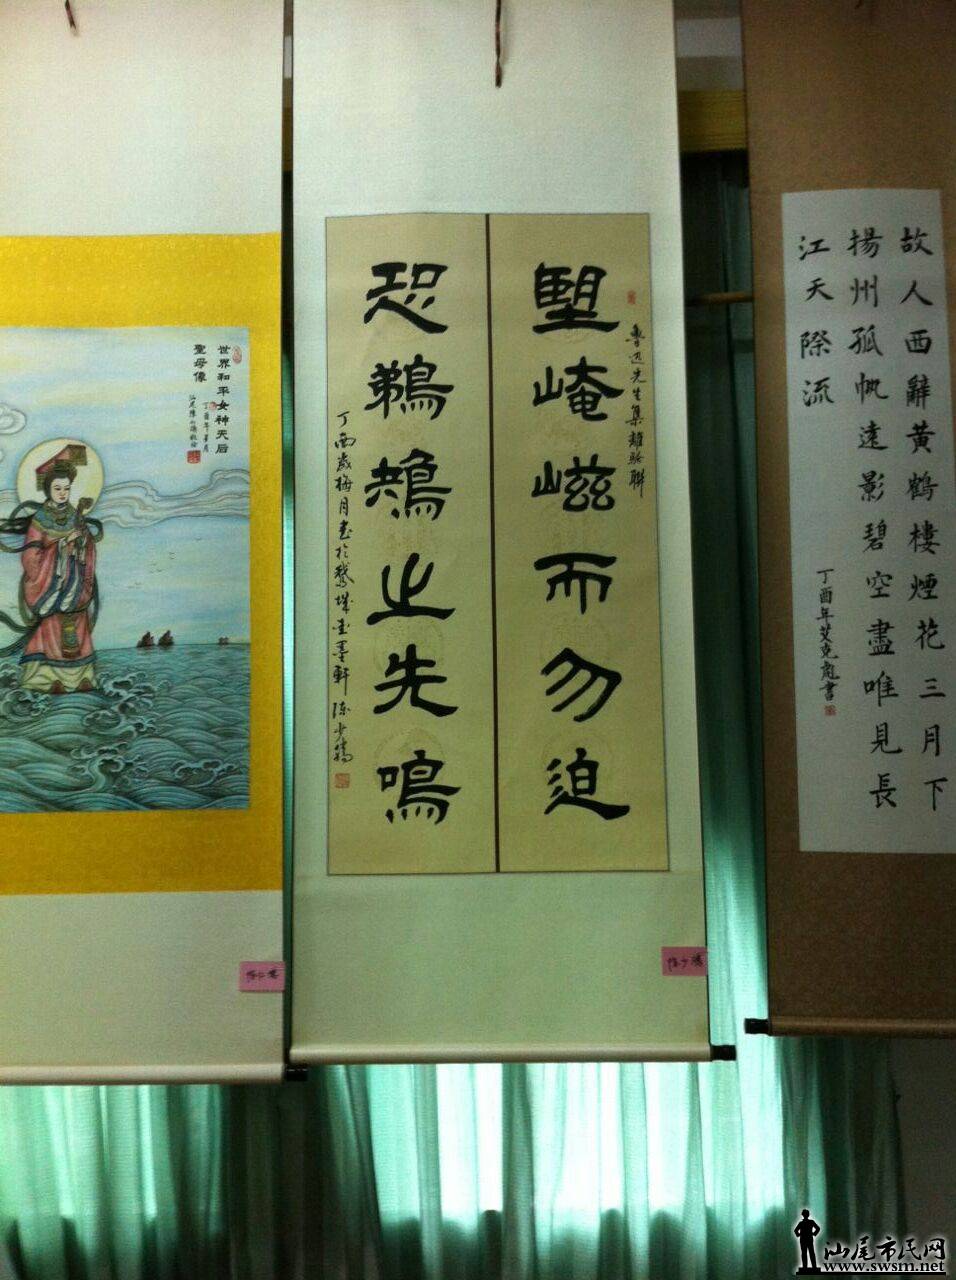 故人西辭黃鶴樓煙花三月下
揚州孤帆遠影碧空盡唯見長
江天際流
丁酉年艾克彪書
魯迅先生集離騷聯
朢崦嵫而勿迫
恐鵜鴂之先鳴
丁酉歲梅月書於鵝城墨軒
世界和平女神天后
聖母像
丁酉年夏月
汕尾市民网
www.swsm.net